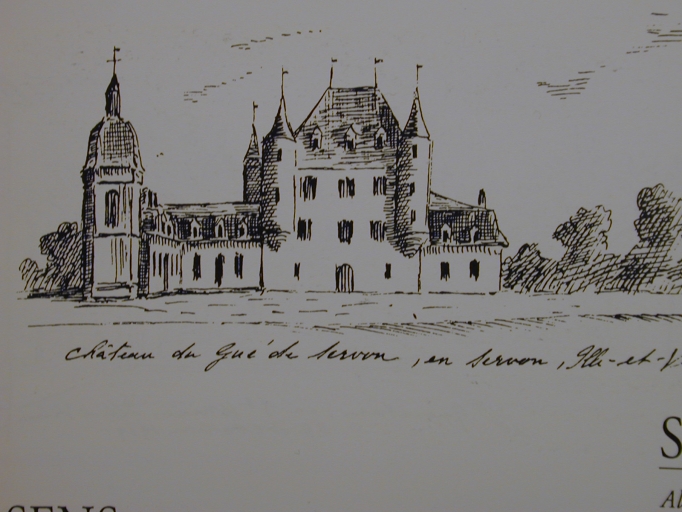 château du Gué de Servon, en Servon, Ille-et-V
S
Al
SENS